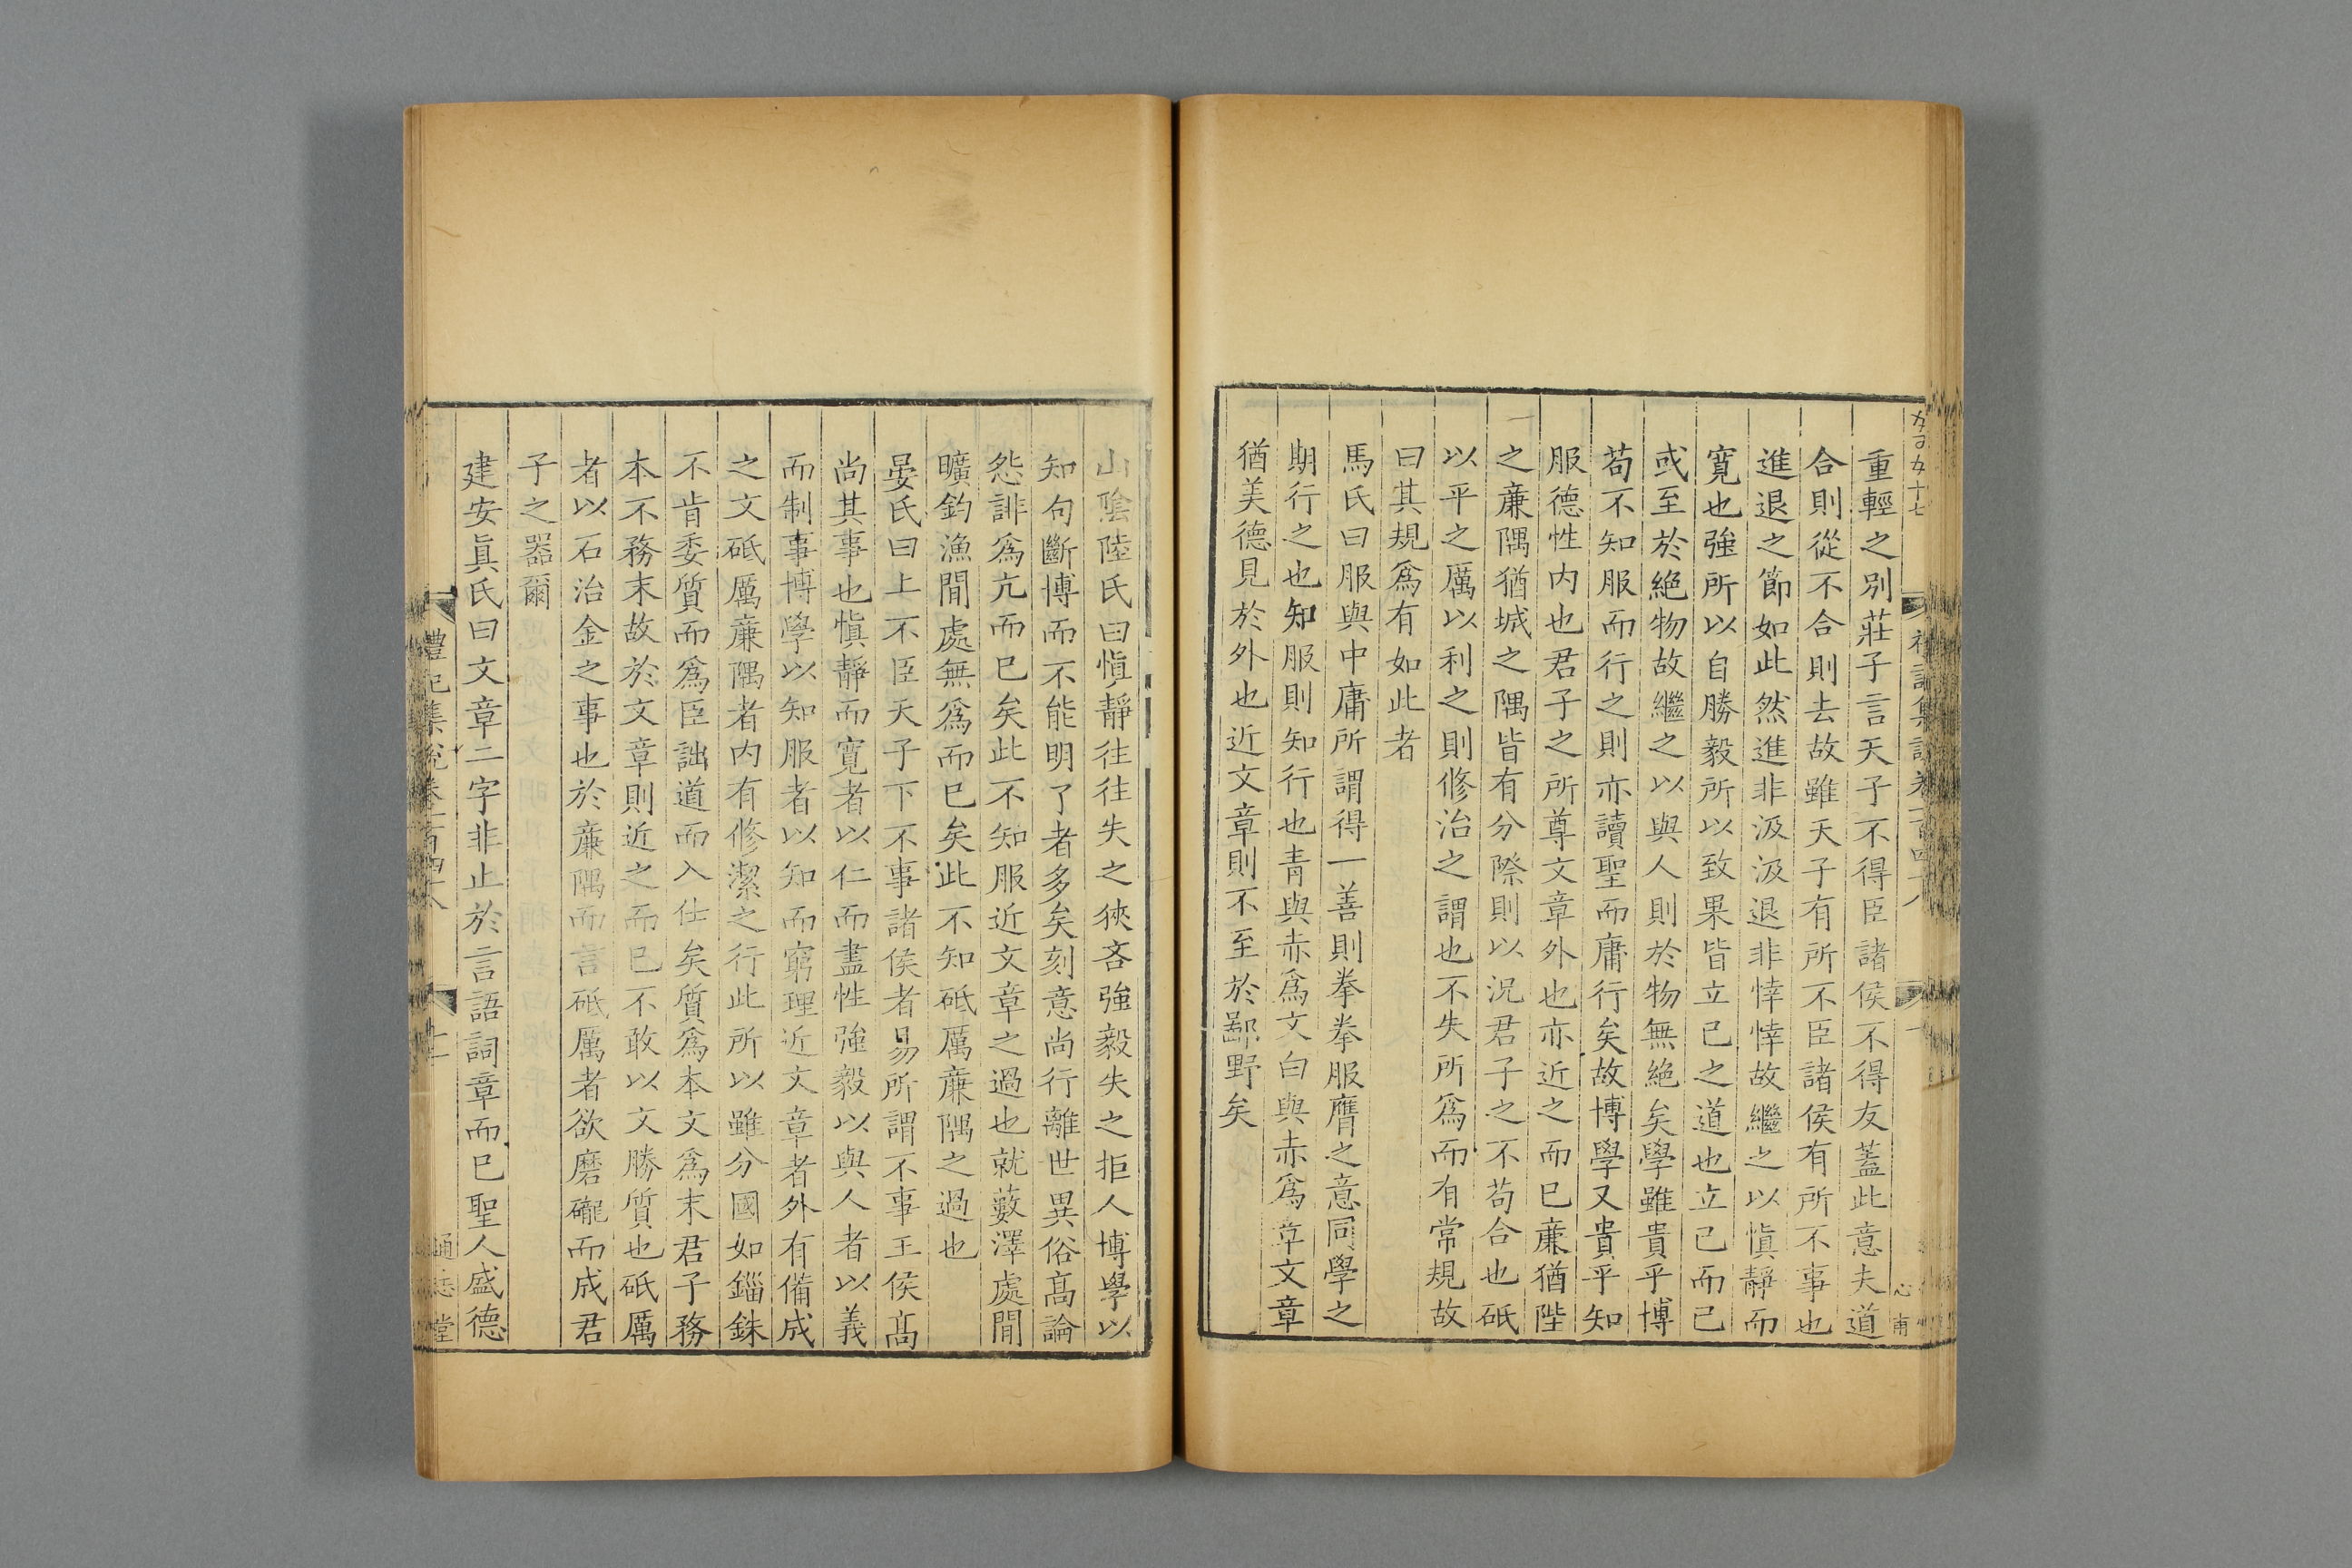 重輕之別莊子言天子不得臣諸侯不得友蓋此意夫道
合則從不合則去故雖天子有所不臣諸侯有所不事也
進退之節如此然進非汲汲退非悻悻故繼之以慎靜而
寬也強所以自勝毅所以致果皆立已之道也立已而已
或至於絕物故繼之以與人則於物無絕矣學雖貴乎博
苟不知服而行之則亦讀聖而庸行矣故博學又貴乎知
服德性内也君子之所尊文章外也亦近之而已廉猶陛
之廉隅猶城之隅皆有分際則以況君子之不苟合也砥
以平之厲以利之則修治之謂也不失所爲而有常規故
曰其規爲有如此者
馬氏曰服與中庸所謂得一善則拳拳服膺之意同學之
期行之也知服則知行也青與赤爲文白與赤爲章文章
猶美德見於外也近文章則不至於鄙野矣
山陰陸氏曰慎靜往往失之狹吝強毅失之拒人博學以
知句斷博而不能明了者多矣刻意尚行離世異俗高論
怨誹爲亢而已矣此不知服近文章之過也就藪澤處閒
曠釣漁閒處無爲而已矣此不知砥厲廉隅之過也
晏氏曰上不臣天子下不事諸侯者易所謂不事王侯高
尚其事也慎靜而寬者以仁而盡性強毅以與人者以義
而制事博學以知服者以知而窮理近文章者外有備成
之文砥厲廉隅者内有修潔之行此所以雖分國如錙銖
不肯委質而爲臣詘道而入仕矣質爲本文爲末君子務
本不務末故於文章則近之而已不敢以文勝質也砥厲
者以石治金之事也於廉隅而言砥厲者欲磨礲而成君
子之器爾
建安眞氏曰文章二字非止於言語詞章而已聖人盛德
禮記集說卷一百四十八
十一
通志堂